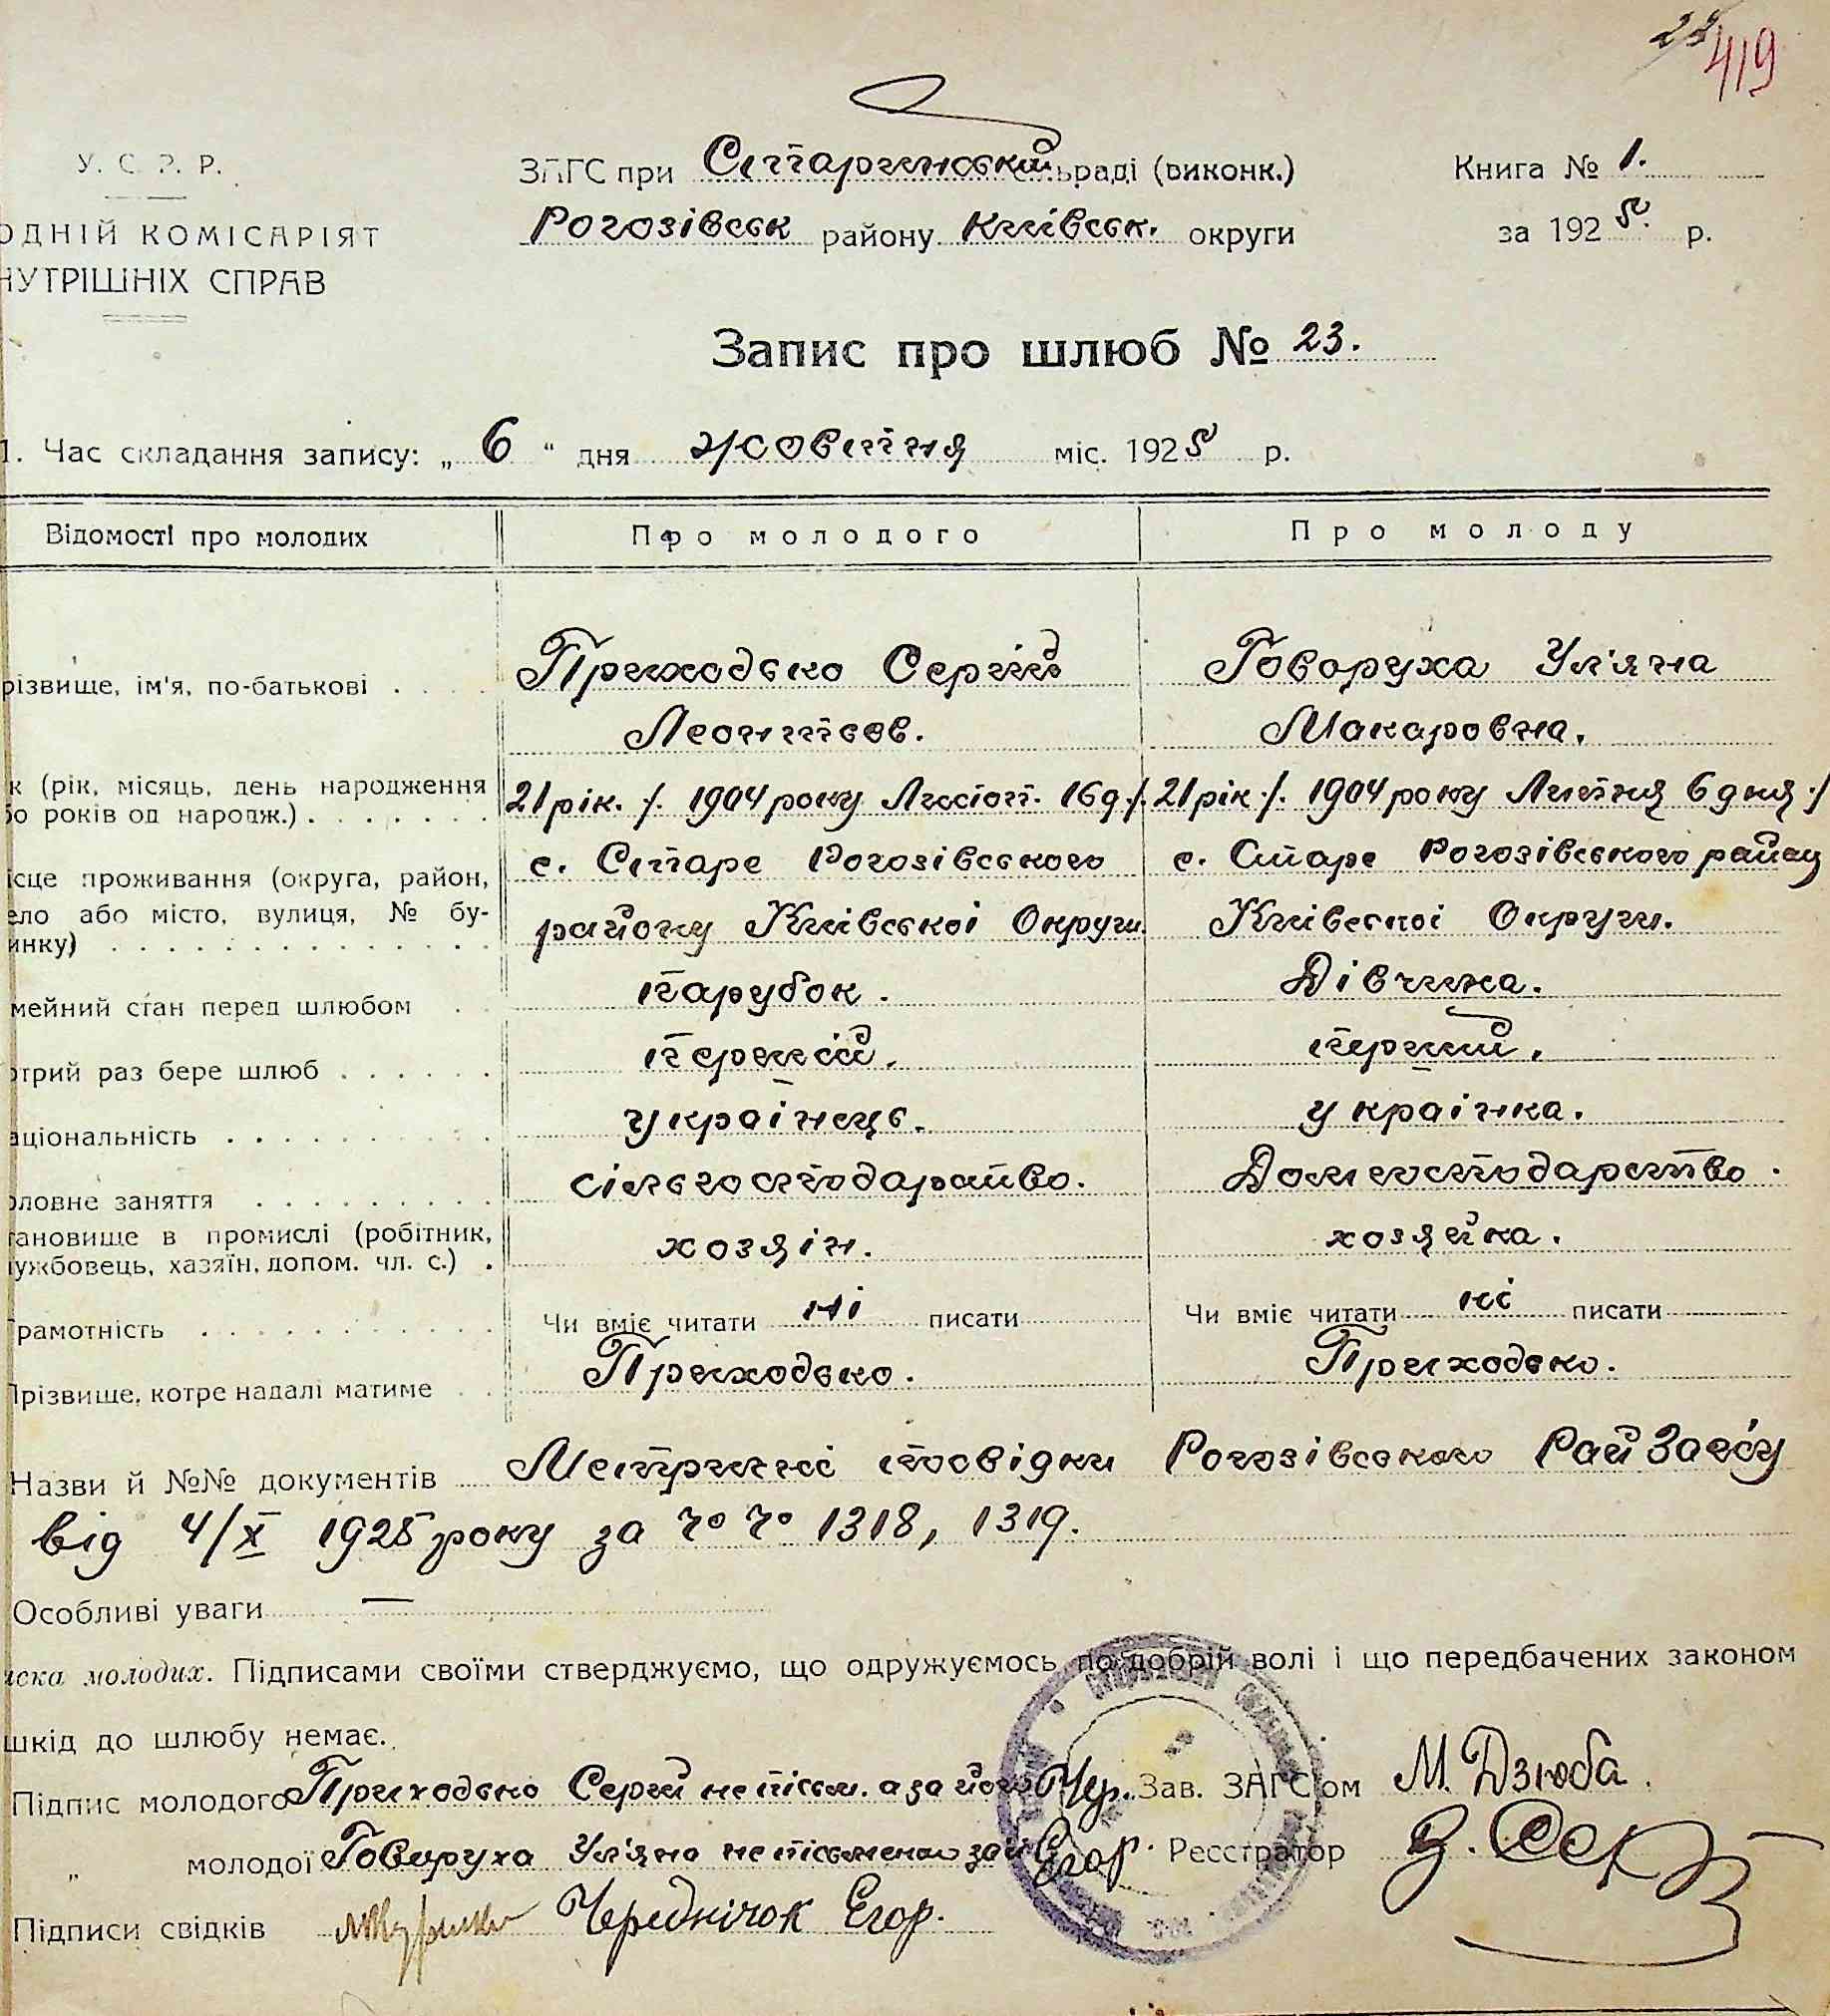 419
У. С. Р. Р.
ОДНІЙ КОМІСАРІЯТ
НУТРІШНІХ СПРАВ
ЗАГС при Старинській сільраді (виконк.)
Рогозівськ району Київськ. округи
Книга № 1.
за 1925 р.
Запис про шлюб № 23.
1. Час складання запису: „ 6 “ дня жовтня міс. 1925 р.
Відомості про молодих Про молодого Про молоду
різвище, ім'я, по-батькові . . . Приходько Сергій Говоруха Ул'яна
Леонтієв. Макаровна.
к (рік, місяць, день народження
бо років од народж.) . . . . . . . 21 рік. /. 1904 року Листоп. 16 д./. 21 рік /. 1904 року Липня 6 дня ./
ісце проживання (округа, район, с. Старе Рогозівського с. Старе Рогозівського району
ело або місто, вулиця, № бу-
инку) . . . . . . . . . . . . . району Київської Округи. Київської Округи.
мейний стан перед шлюбом . . парубок. Дівчина.
отрий раз бере шлюб . . . . . . перший. перший.
аціональність . . . . . . . . . . українець. українка.
оловне заняття . . . . . . . . . сільгосподарство. Домгосподарство.
тановище в промислі (робітник,
ужбовець, хазяїн, допом. чл. с.) . хозяін. хозяйка.
рамотність . . . . . . . . . . . Чи вміє читати ні писати Чи вміє читати ні писати
Прізвище, котре надалі матиме . . Приходько. Приходько.
Назви й №№ документів Метричні посвідки Рогозівського РайЗагсу
від 4/X 1925 року за №№ 1318, 1319.
Особливі уваги —
иска молодих. Підписами своїми стверджуємо, що одружуємось по добрій волі і що передбачених законом
шкід до шлюбу немає.
Підпис молодого Приходько Сергій не пісьм. а за його Чер. Зав. ЗАГС'ом М. Дзюба.
„ молодої Говоруха Ул'яна не пісьменна за Єгор. Реєстратор
Підписи свідків Череднічок Егор.